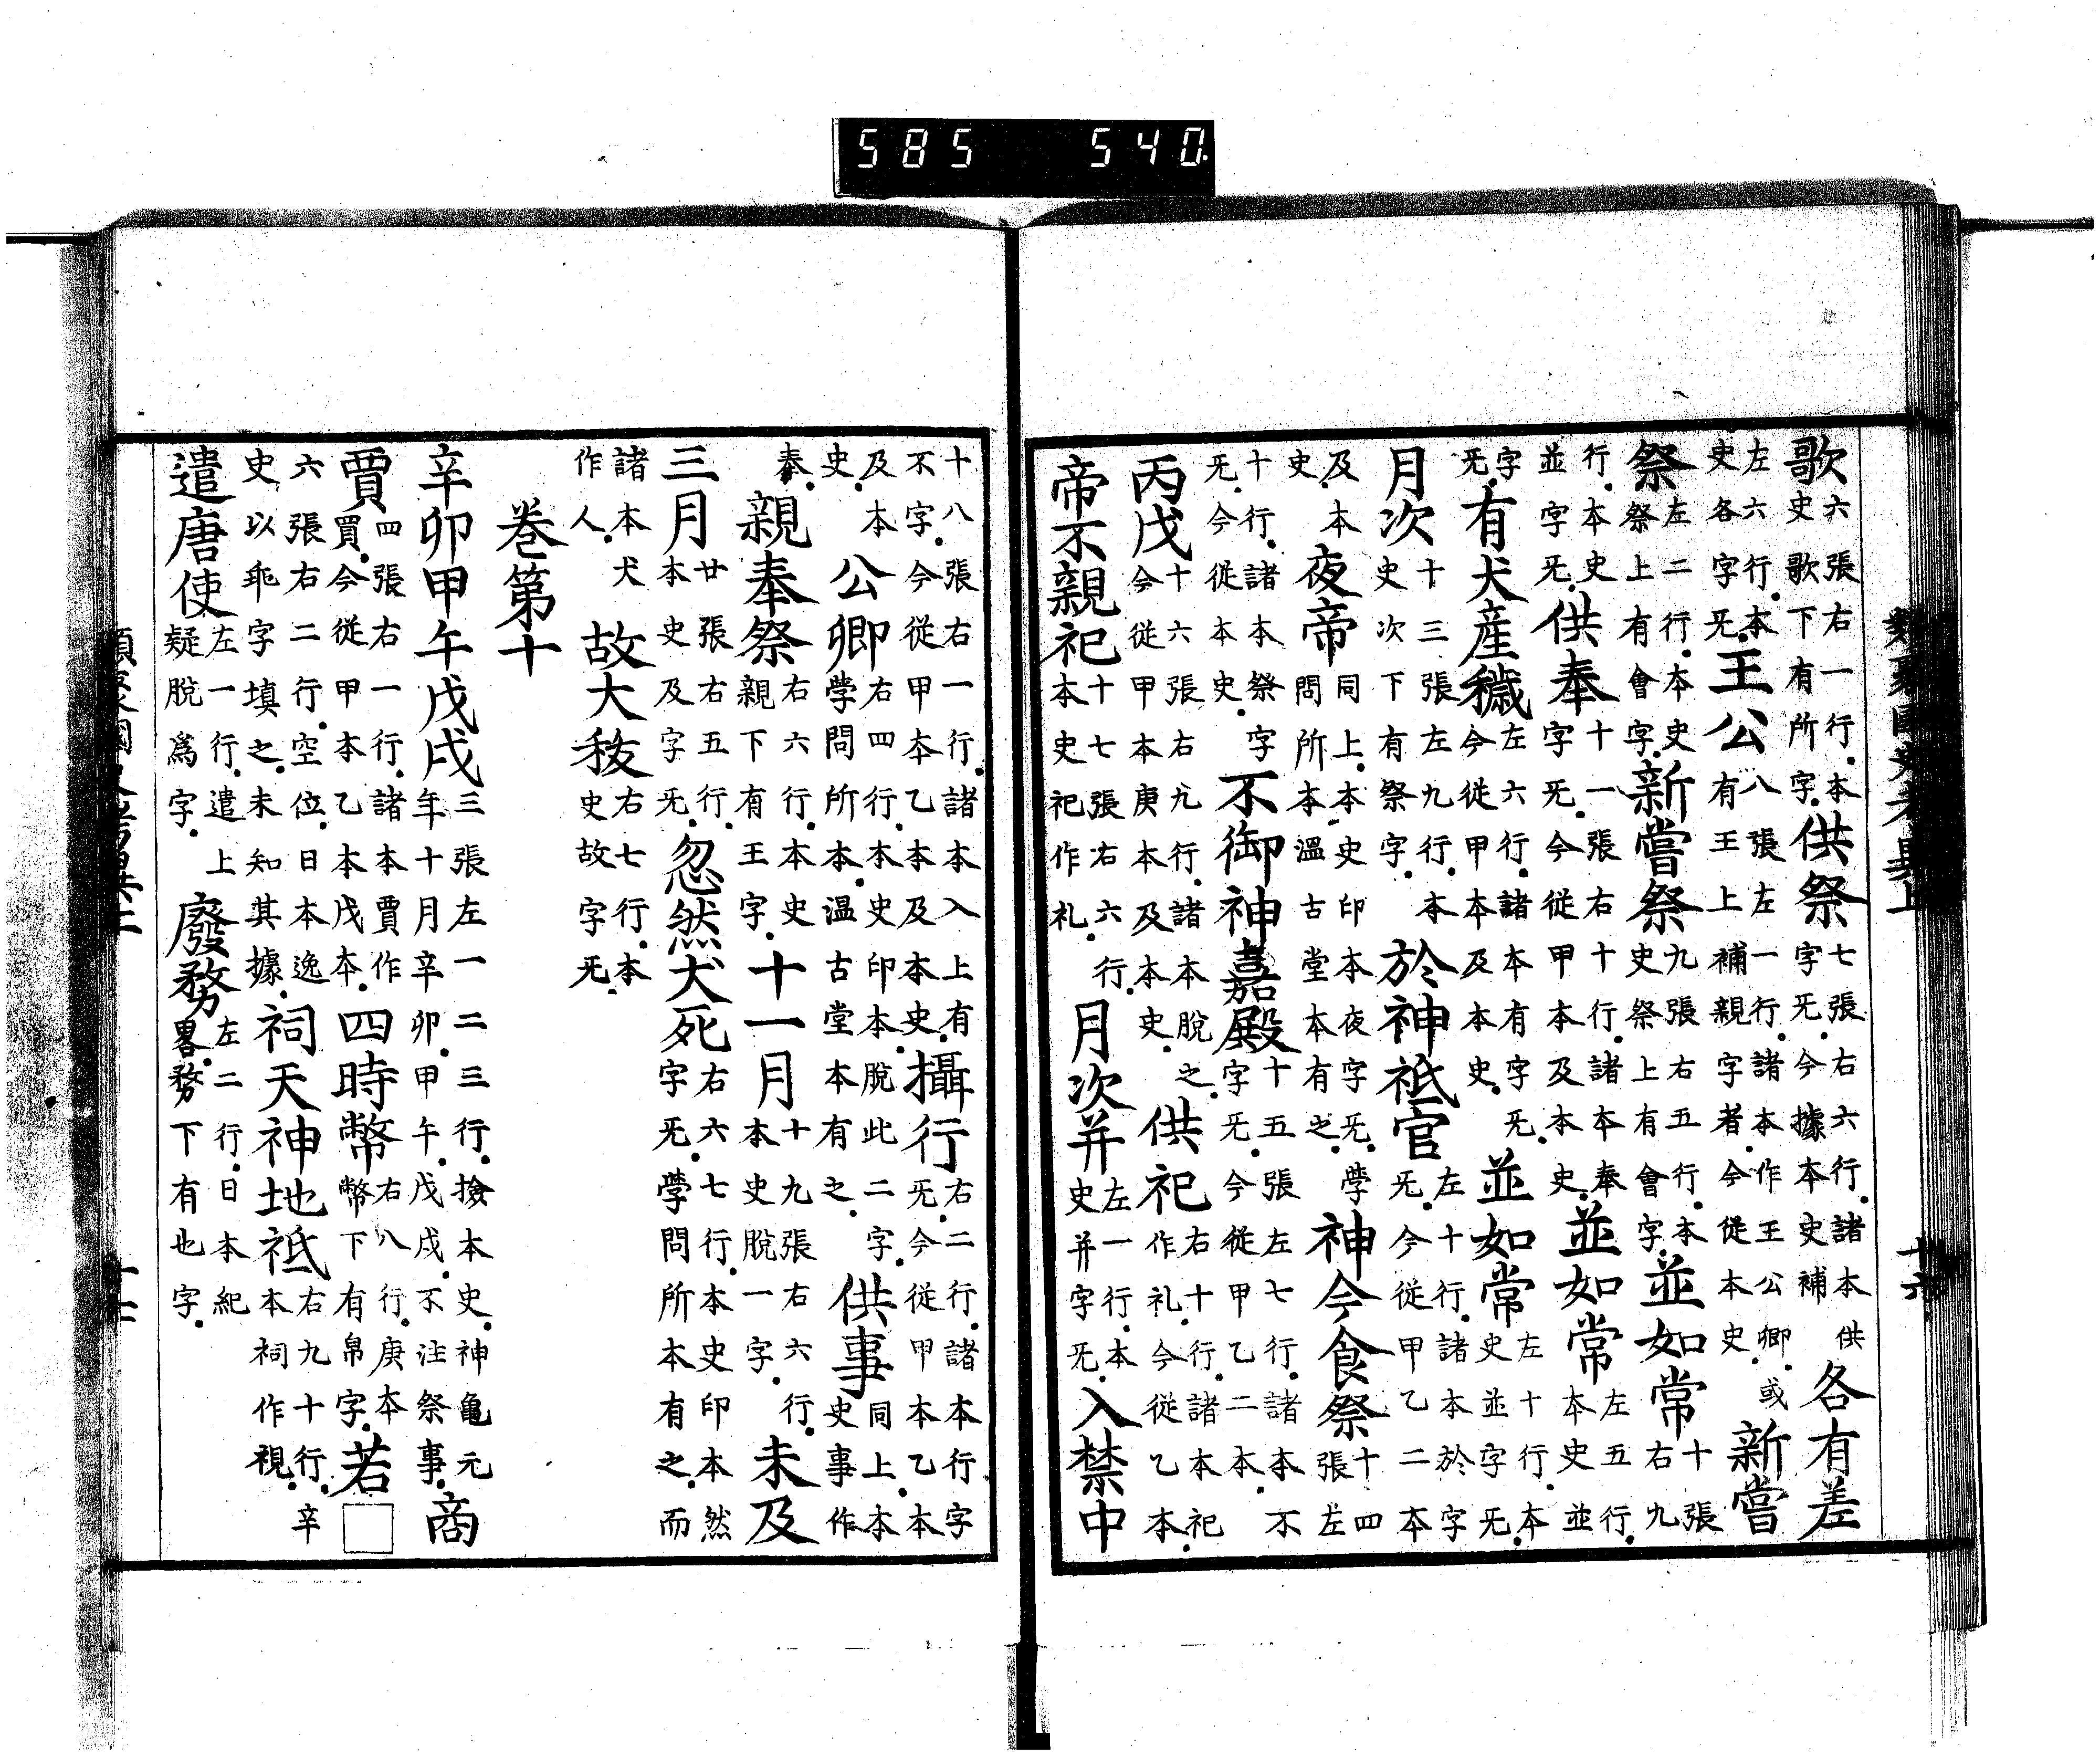 類聚國史考異上　十六
歌六張右一行。本史歌下有所字。供祭七張右六行。諸本供字旡。今據本史補各有差
左六行。本史各字旡。王公八張左一行。諸本作王公卿。或有王上補親字者。今從本史。新嘗
祭左二行。本史祭上有會字。新嘗祭九張右五行。本史祭上有會字。並如常十張右九
行。本史並字旡。供奉十一張右十行。諸本奉字旡。今從甲本及本史。並如常左五行。本史並
字旡。有犬産穢左六行。諸本有字旡。今從甲本及本史。並如常左十行。本史並字旡。
月次十三張左九行。本史次下有祭字。於神祇官左十行。諸本於字旡。今從甲乙二本
及本史。夜帝同上。本史印本夜字旡。學問所本。温古堂本有之。神今食祭十四張左
十行。諸本祭字旡。今從本史。不御神嘉殿十五張左七行。諸本不字旡。今從甲乙二本。
丙戌十六張右九行。諸本脱之。今從甲本庚本及本史。供祀右十行。諸本祀作礼。今從乙本。
帝不親祀十七張右六行。本史祀作礼。月次并左一行。本史并字旡。入禁中
十八張右一行。諸本入上有不字。今從甲本乙本及本史。攝行右二行。諸本行字旡。今從甲本乙本
及本史。公卿右四行。本史印本。脱此二字。學問所本。温古堂本有之。供事同上。本史事作
奉。親奉祭右六行。本史親下有王字。十一月十九張右六行。本史脱一字。未及
三月廿張右五行。本史及字旡。忽然犬死右六七行。本史印本然字旡。學問所本有之。而
諸本犬作人。故大秡右七行。本史故字旡。
卷第十
辛卯甲午戊戌三張左一二三行。撿本史。神龜元年十月辛卯。甲午。戊戌。不注祭事。商
賈四張右一行。諸本賈作買。今從甲本乙本戊本。四時幣右八行。庚本幣下有帛字。若□
六張右二行。空位。日本逸史以乖字填之。未知其據。祠天神地祇右九十行。辛本祠作視。
遣唐使左一行。遣上疑脱爲字。廢務左二行。日本紀畧。務下有也字。
585 540.